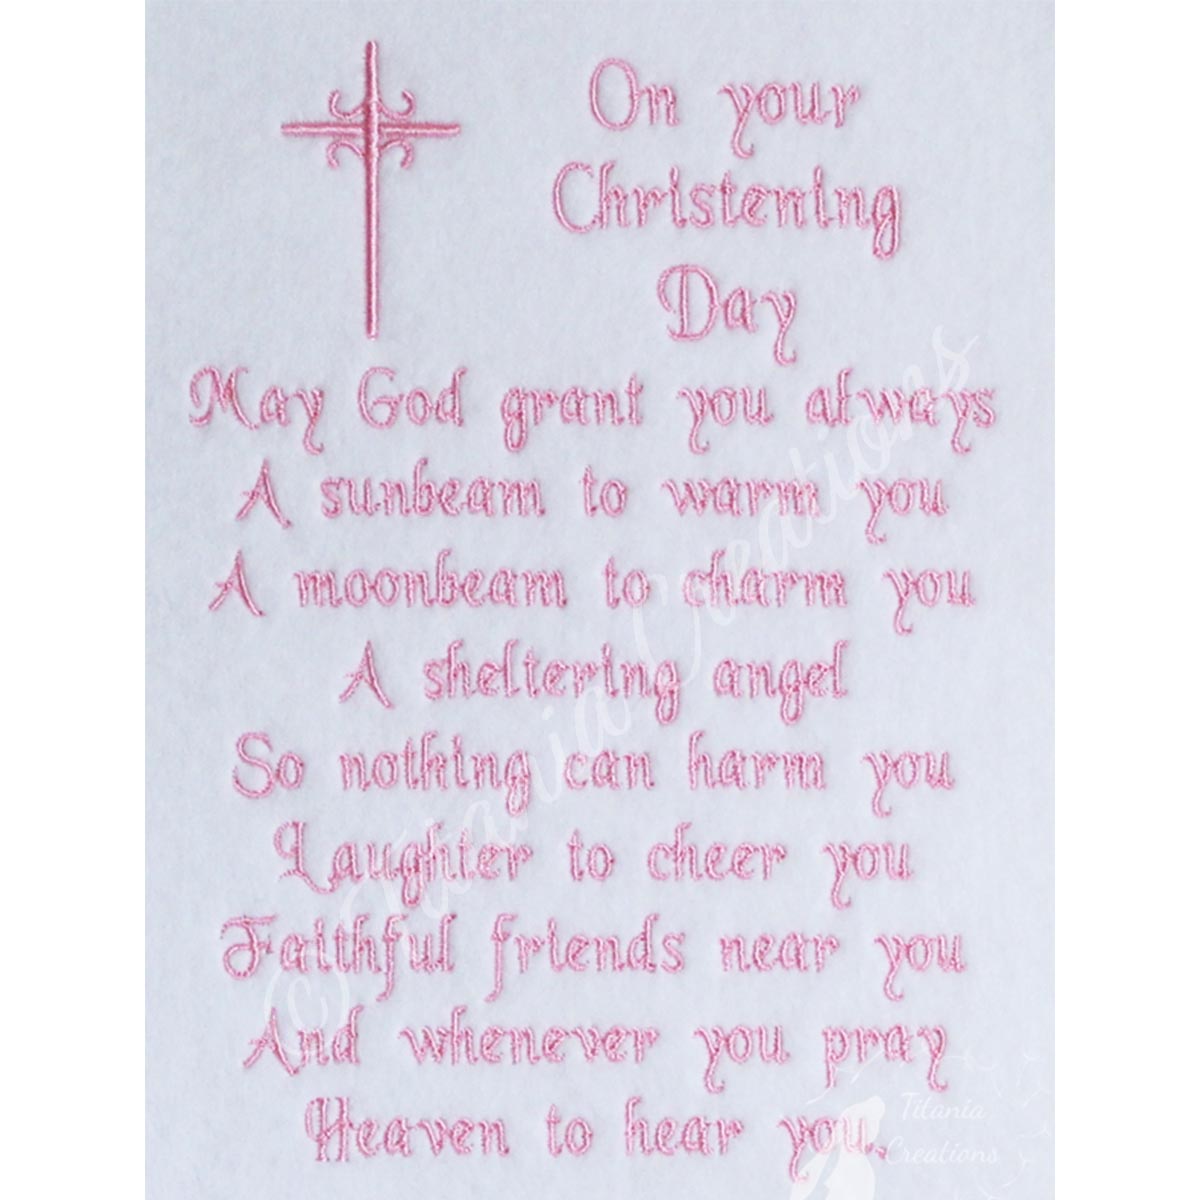 On your
Christening
Day
May God grant you always
A sunbeam to warm you
A moonbeam to charm you
A sheltering angel
So nothing can harm you
Laughter to cheer you
Faithful friends near you
And whenever you pray
Heaven to hear you.
© Titania Creations
Titania
Creations